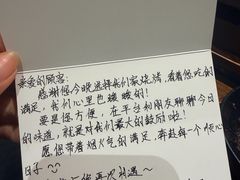 亲爱的顾客：
感谢您今晚选择我们家烧烤，看着您吃的
满足，我们心里也暖暖的！
要是您方便，在平台和朋友聊聊今日
的味道，就是对我们最大的鼓励啦！
愿您带着烟火气的满足，奔赴每一个惬心
日子
您再次相遇～